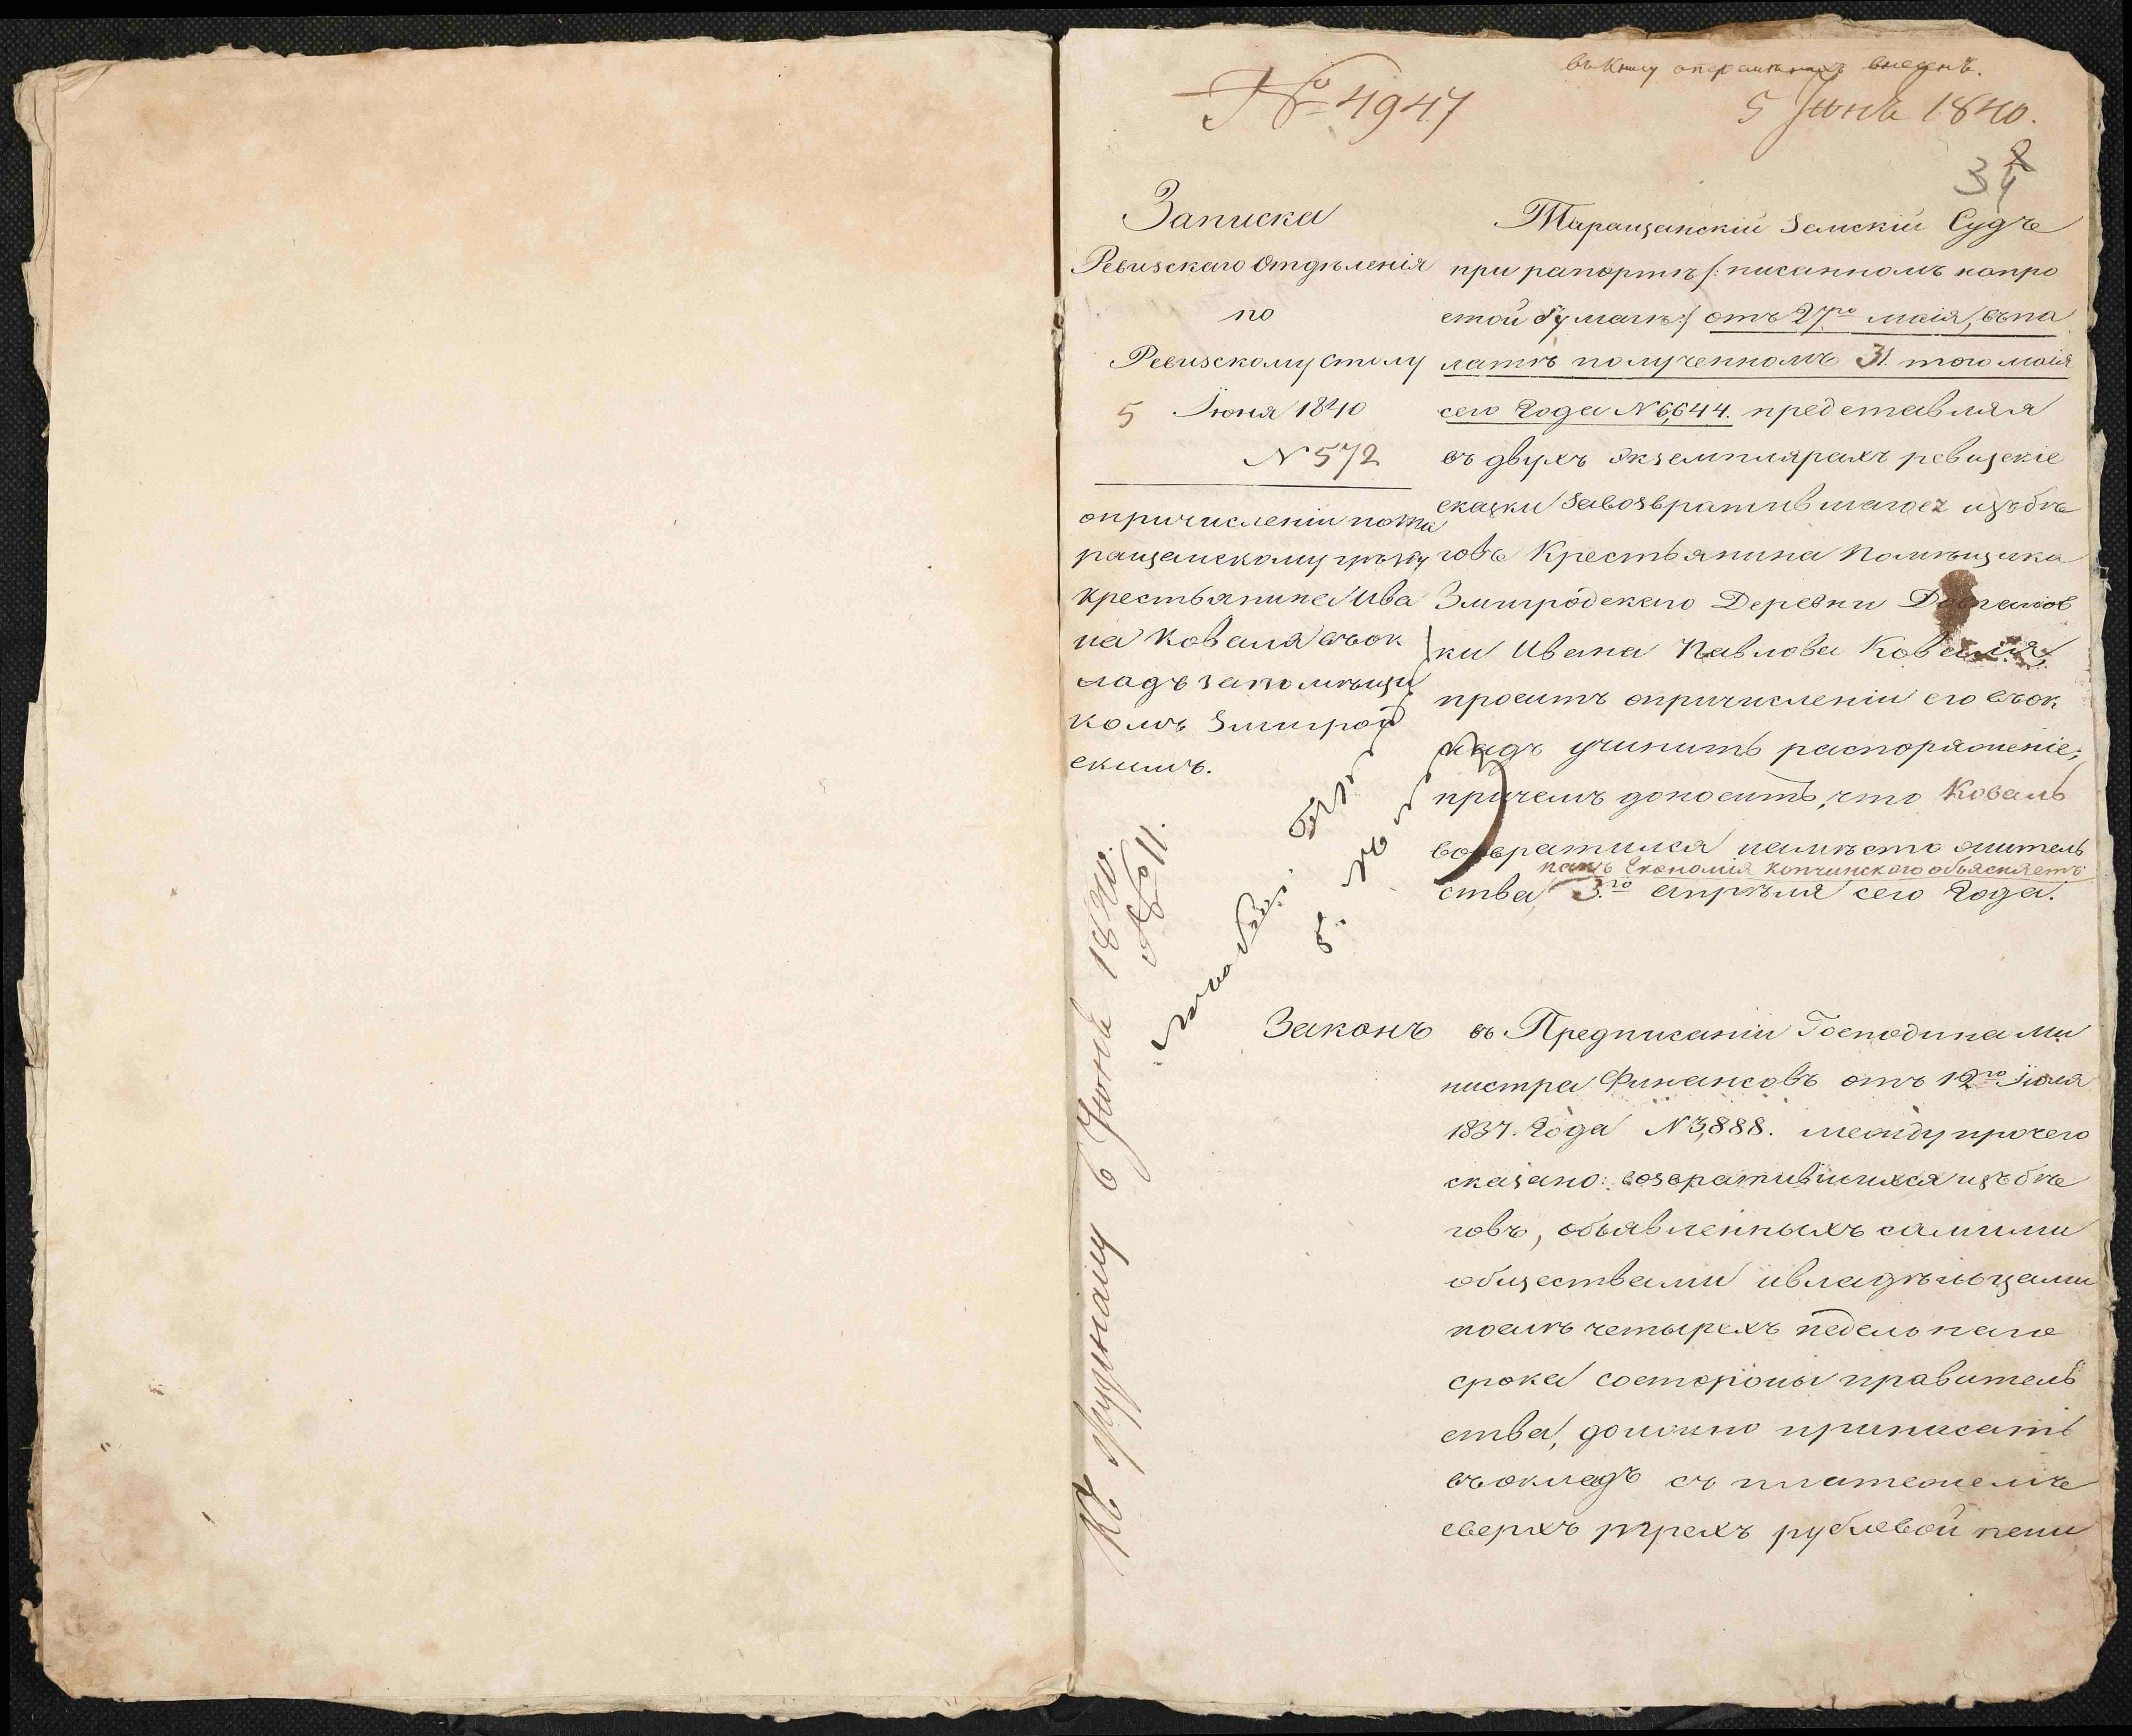 въ книгу внесенъ.
№ 4947
5 Іюнь 1840.
34
Записка
Ревизскаго Отдѣленія
по
Ревизскому Столу
5 Іюня 1840
N 572
опричисленіи пота
ращанскому уѣзду
крестьянина Ива
на Коваля въок
ладъ запомѣщи
комъ Змигрод
скимъ.
Къ журналу 6 Іюня 1840.
№ 11.
Таращанскій Земскій Судъ
при рапортѣ /: писанномъ напро
стой бумагѣ :/ отъ 27го маія, въпа
латѣ полученномъ 31. того маія
сего Года N 6,644. представляя
въ двухъ экземплярахъ ревизскіе
сказки завозвратившагося изъбѣ
говъ Крестьянина Помѣщика
Змигродскаго Деревни
ки Ивана Павлова Коваля,
проситъ опричисленіи его въок
ладъ учинить распоряженіе;
причемъ доноситъ, что Коваль
возвратился намѣсто житель
какъ Економія Копчинского объясняетъ
ства, 3.го апрѣля сего Года.
Законъ
въ Предписаніи Господина Ми
нистра Финансовъ отъ 12го Іюля
1837. Года N 3,888. между прочего
сказано: возвратившихся изъбѣ
говъ, объявленныхъ самими
обществами ивладѣльцами
послѣ четырехъ недельнаго
срока состороны правитель
ства, должно приписать
въокладъ съ платежемъ
сверхъ трехъ рублевой пени